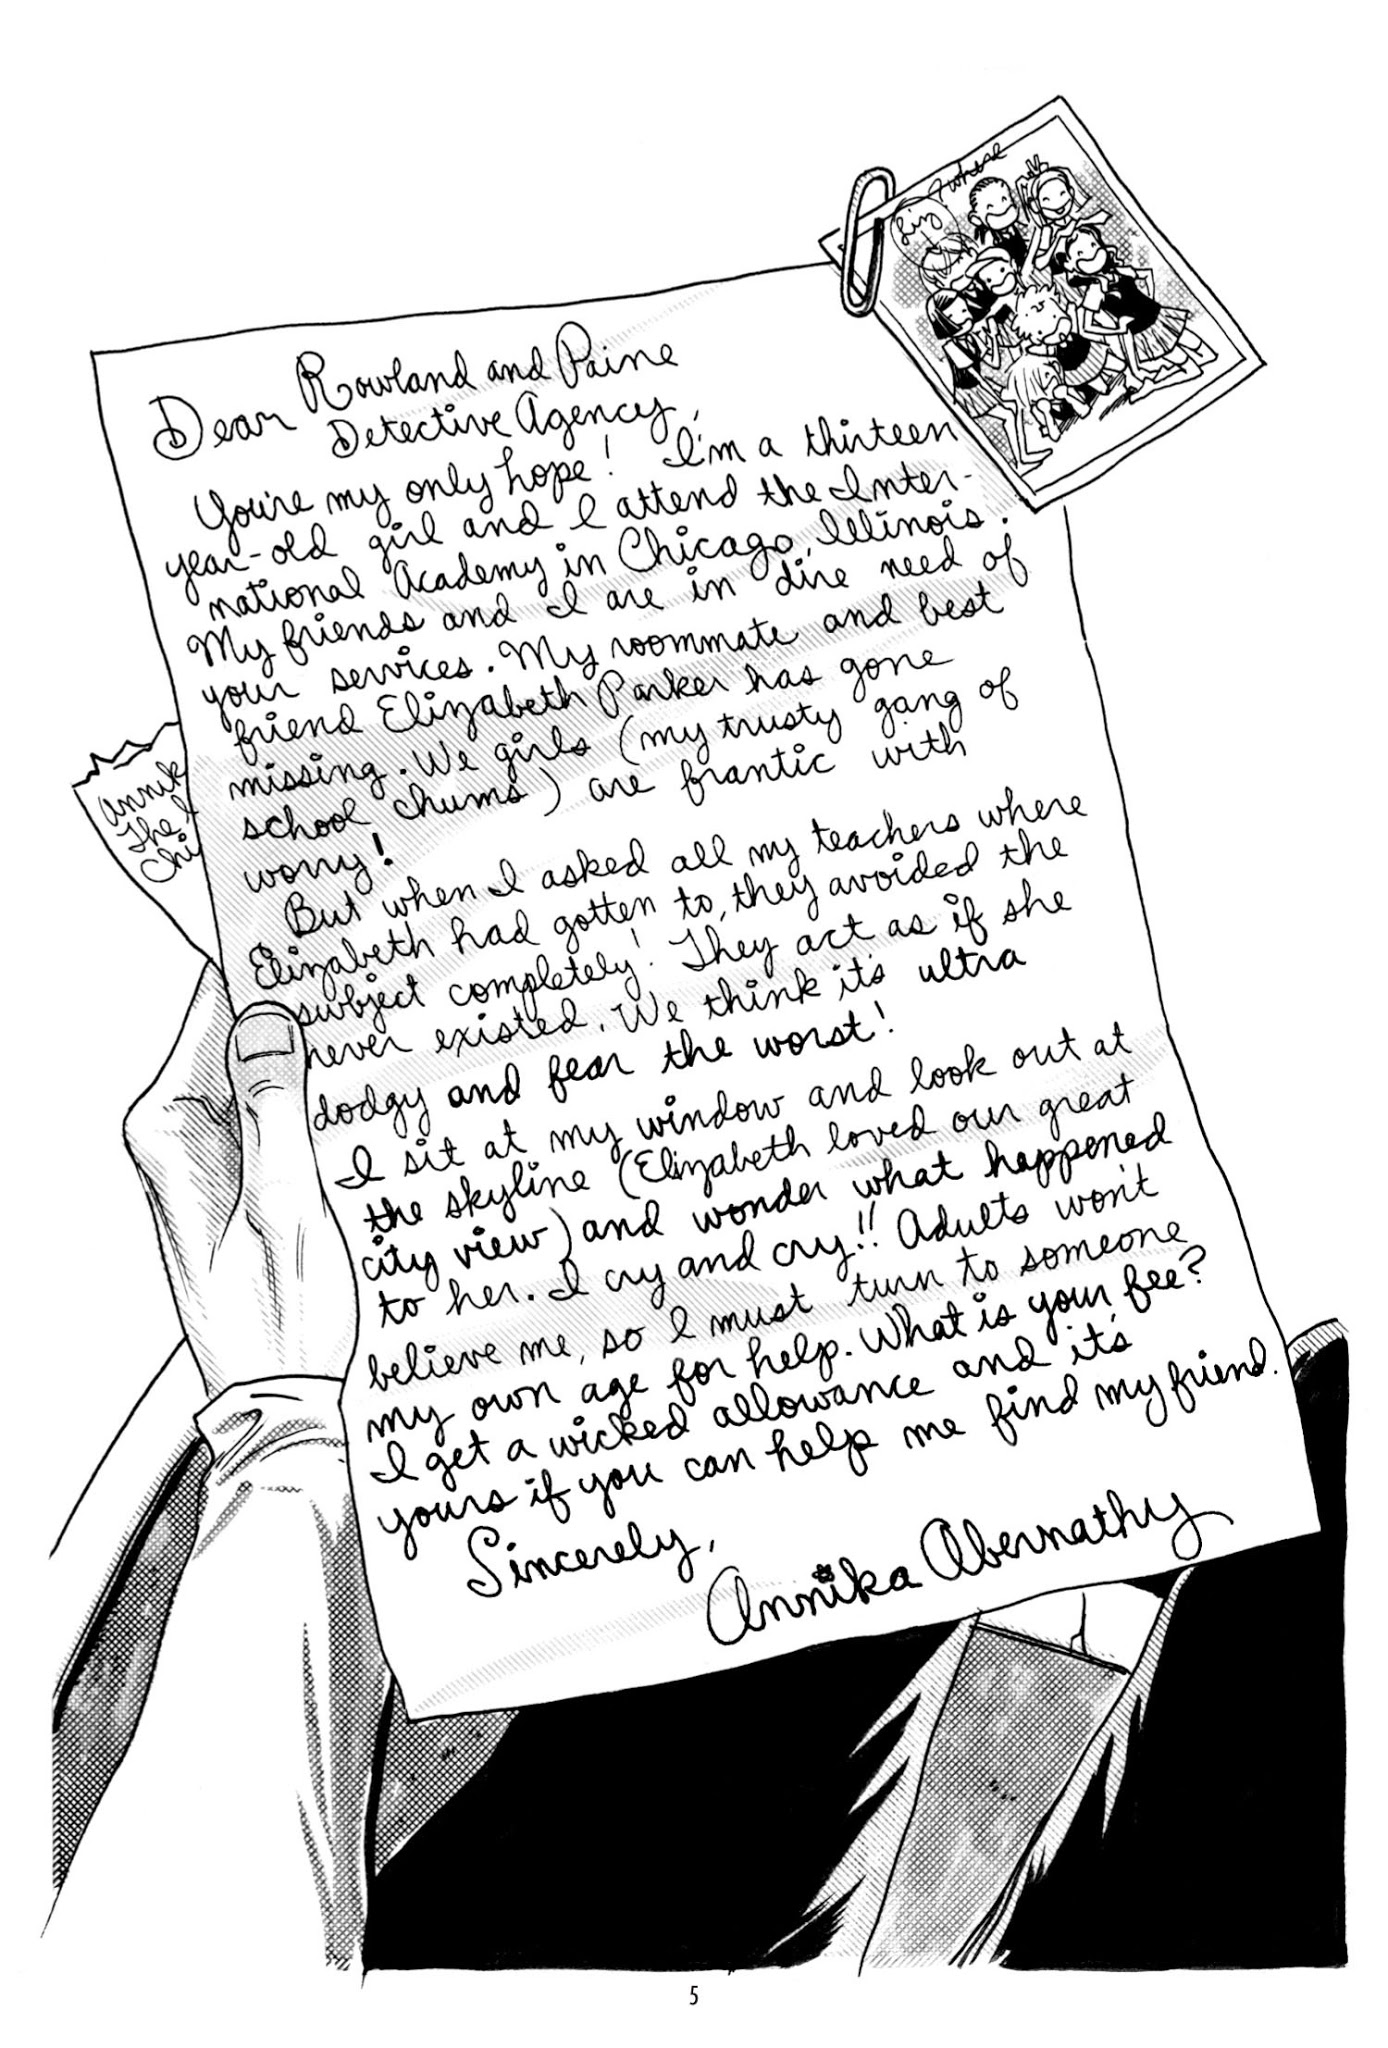 Liz
where
Dear Rowland and Paine
Detective Agency,
You're my only hope! I'm a thirteen
year-old girl and I attend the Inter-
national Academy in Chicago, Illinois.
My friends and I are in dire need of
your services. My roommate and best
friend Elizabeth Parker has gone
missing. We girls (my trusty gang of
school chums) are frantic with
worry!
But when I asked all my teachers where
Elizabeth had gotten to, they avoided the
subject completely! They act as if she
never existed. We think it's ultra
dodgy and fear the worst!
I sit at my window and look out at
the skyline (Elizabeth loved our great
city view) and wonder what happened
to her. I cry and cry!! Adults won't
believe me, so I must turn to someone
my own age for help. What is your fee?
I get a wicked allowance and it's
yours if you can help me find my friend.
Sincerely,
Annika Abernathy
Annik
The
Chi
5